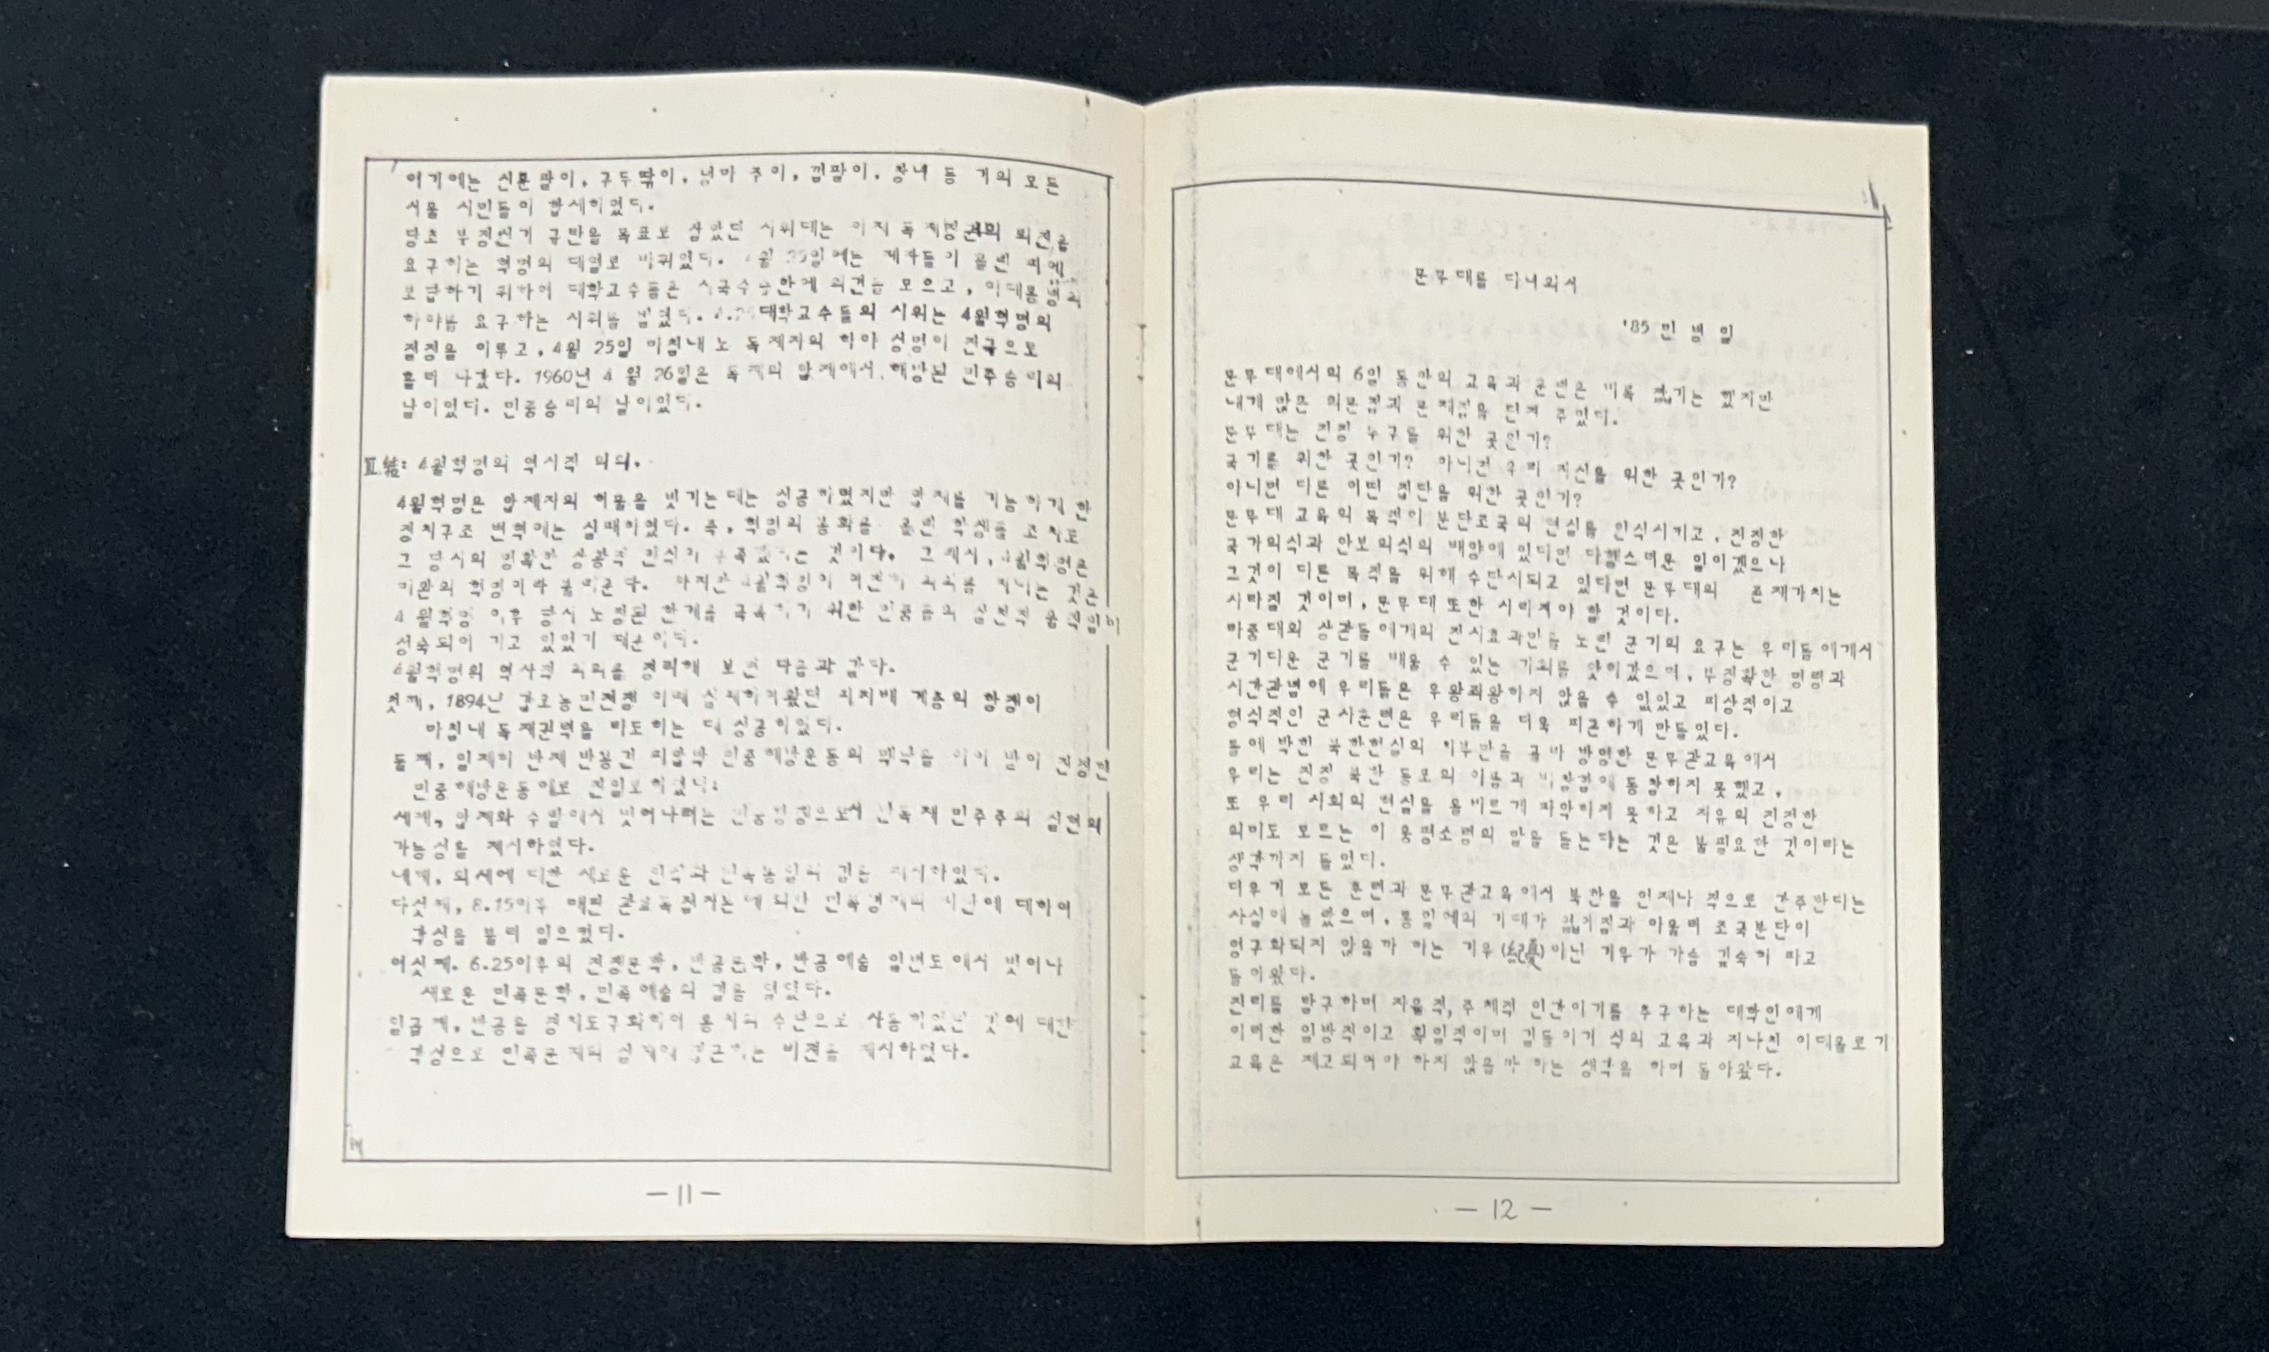 여기에는 신문팔이, 구두딲이, 넝마 주이, 껌팔이, 창녀 등 거의 모든
서울 시민들이 합세하였다.
당초 부정선거 규탄을 목표로 삼았던 시위대는 이제 독재정권의 퇴진을
요구하는 혁명의 대열로 바뀌었다. 4월 25일에는 제자들이 흘린 피에
보답하기 위하여 대학교수들은 시국수습안에 의견을 모으고, 이대통령의
하야를 요구하는 시위를 벌였다. 4.25대학교수들의 시위는 4월혁명의
절정을 이루고, 4월 25일 마침내 노 독재자의 하야 성명이 전국으로
흘러 나갔다. 1960년 4 월 26일은 독재의 압제에서 해방된 민주승리의
날이었다. 민중승리의 날이었다.
Ⅲ.結: 4월혁명의 역사적 의의.
4월혁명은 압제자의 허물을 벗기는데는 성공하였지만 압제를 가능하게 한
정치구조 변혁에는 실패하였다. 즉, 혁명의 봉화를 올린 학생들 조차도
그 당시의 명확한 상황적 인식이 부족했다는 것이다. 그래서, 4월혁명은
미완의 혁명이라 불리운다. 하지만 4월혁명이 여전히 의의를 지니는 것은
4월혁명 이후 당시 노정된 한계를 극복하기 위한 민중들의 실천적 움직임이
성숙되어 가고 있었기 때문이다.
4월혁명의 역사적 의의를 정리해 보면 다음과 같다.
첫째, 1894년 갑오농민전쟁 이래 실패하여왔던 피지배 계층의 항쟁이
마침내 독재권력을 타도하는 데 성공하였다.
둘째, 일제하 반제 반봉건 피압박 민중해방운동의 맥락을 이어 받아 진정한
민중해방운동으로 진일보하였다.
세째, 압제와 수탈에서 벗어나려는 민중항쟁으로서 반독재 민주주의 실현의
가능성을 제시하였다.
네째, 외세에 대한 새로운 인식과 민족통일의 길을 제시하였다.
다섯째, 8.15이후 매판 관료독점자본에 의한 민족경제의 파탄에 대하여
각성을 불러 일으켰다.
여섯째. 6.25이후의 전쟁문학, 반공문학, 반공예술 일변도에서 벗어나
새로운 민족문학, 민족예술의 길을 열었다.
일곱째, 반공을 정치도구화하여 통치의 수단으로 사용하였던 것에 대한
각성으로 민족문제의 실체에 접근하는 비젼을 제시하였다.
— 11 —
문무대를 다녀와서
'85 민 병 일
문무대에서의 6일 동안의 교육과 훈련은 비록 짧기는 했지만
내게 많은 의문점과 문제점을 던져 주었다.
문무대는 진정 누구를 위한 곳인가?
국가를 위한 곳인가? 아니면 우리 자신을 위한 곳인가?
아니면 다른 어떤 집단을 위한 곳인가?
문무대 교육의 목적이 분단조국의 현실을 인식시키고, 진정한
국가의식과 안보의식의 배양에 있다면 다행스러운 일이겠으나
그것이 다른 목적을 위해 수단시되고 있다면 문무대의 존재가치는
사라질 것이며, 문무대 또한 사라져야 할 것이다.
마중대의 상관들에게의 전시효과만을 노린 군기의 요구는 우리들에게서
군기다운 군기를 배울 수 있는 기회를 앗아갔으며, 부정확한 명령과
시간관념에 우리들은 우왕좌왕하지 않을 수 없었고 피상적이고
형식적인 군사훈련은 우리들을 더욱 피곤하게 만들었다.
틀에 박힌 북한현실의 일부만을 극화 방영한 문무관교육에서
우리는 진정 북한 동포의 아픔과 비참함에 동참하지 못했고,
또 우리 사회의 현실을 올바르게 파악하지 못하고 자유의 진정한
의미도 모르는 이 웅평소령의 말을 듣는다는 것은 불필요한 것이라는
생각까지 들었다.
더우기 모든 훈련과 문무관교육에서 북한을 언제나 적으로 간주한다는
사실에 놀랐으며, 통일에의 기대가 없어짐과 아울러 조국분단이
영구화되지 않을까 하는 기우(杞憂)아닌 기우가 가슴 깊숙히 파고
들어왔다.
진리를 탐구하며 자율적, 주체적 인간이기를 추구하는 대학인에게
이러한 일방적이고 획일적이며 길들이기 식의 교육과 지나친 이데올로기
교육은 재고되어야 하지 않을까 하는 생각을 하며 돌아왔다.
— 12 —